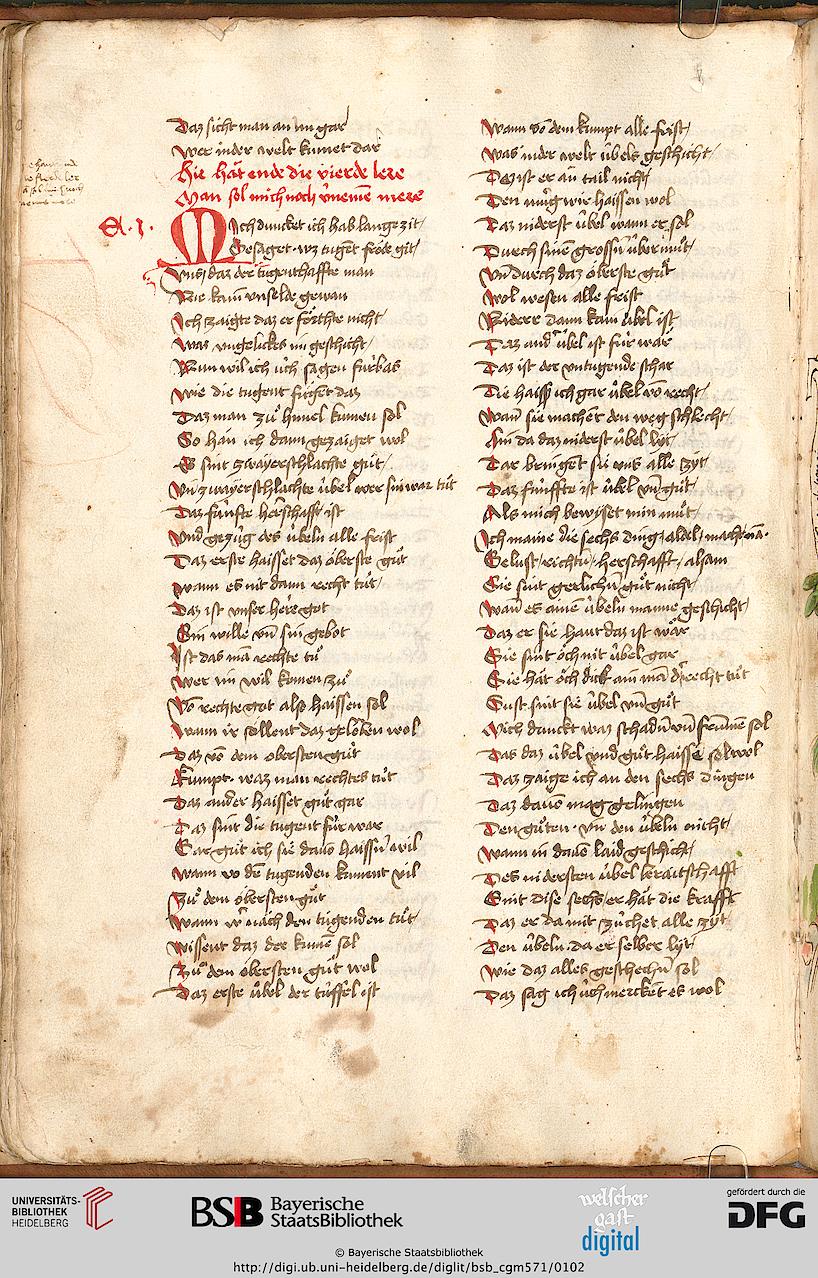 Daz sicht man an im gar
Wer in der welt kumet dar
Hie hat ende die vierde lere
Man sol mich noch v̄nemen mere
A. I.
Mich duncket ich hab lange zit
Gesaget wz tugent fröde git
Vns daz der tugenthaffte man
Nie kain vnselde gewan
Ich zaigte daz er förchte nicht
Was vngelickes im geschicht
Nun wil ich üch sagen fürbas
Wie die tugent füget das
Daz man zů himel kumen sol
So han ich dann gezaiget wol
Es sint zwayerschlachte gůt
Vn̄ zwayerschlachte übel wer sin war tůt
Daz fünfte herschafft ist
Vnd gezüg des übeln alle frist
Daz erste haisset daz öberste gůt
Wann es nit dann recht tůt
Daz ist vnser herre got
Sin wille vn̄ sin gebot
Ist das mā rechte tů
Wer im wil komen zů
Vō rechte got also haissen sol
Wann ir söllent daz geloben wol
Daz vō dem obersten gůt
Kumpt waz man rechtes tůt
Daz ander haisset gůt gar
Daz sint die tugent für war
Gar gůt ich sie dauō haissen wil
Wann vō dē tugenden kument vil
Zů dem öbersten gůt
Wann wer nach den tugenden tůt
Wissent daz der kumē sol
Zů dem öbersten gůt wol
Daz erste übel der tüffel ist
Wann vō dem kumpt alle frist
Was in der welt übels geschicht
Dez ist er an tail nicht
Den mug wir haissen wol
Daz niderst übel wann er sol
Durch sinen grossen übermůt
Vn̄ durch daz öberste gůt
Wol wesen alle frist
Niderr dann kain übel ist
Daz and' übel ist für war
Daz ist der vntugende schar
Die haiss ich gar übel vō recht
Wan̄ sie machet den weg schlecht
Hin da daz niderst übel lyt
Dar bringet sie vns alle zyt
Daz fünffte ist übel vn̄ gůt
Als mich bewyset min můt
Ich maine die sechs ding adel, macht, nā.
Gelust, richtū, herschafft, alsam
Sie sint gerlichen gůt nicht
Wan̄ es ainē übeln manne geschicht
Daz er sie haut daz ist wär
Sie sint och nit übel gar
Sie hat och dick ain mā d' recht tůt
Sust sint sie übel vn̄ gůt
Mich dunckt waz schaden vn̄ frumen sol
Das daz übel vnd gůt haisse sol wol
Daz zaige ich an den sechs dingen
Daz dauō mag gelingen
Den gůten vn̄ den übeln nicht
Wann in dauō laid geschicht
Des nidersten übel beraitschafft
Sint dise sechs er hät die krafft
Daz er da mit zücket alle zyt
Den übeln da er selber lyt
Wie daz alles geschechen sol
Daz sag ich üch merckent es wol
UNIVERSITÄTS-
BIBLIOTHEK
HEIDELBERG
BSB Bayerische
StaatsBibliothek
welscher
gast
digital
gefördert durch die
DFG
© Bayerische Staatsbibliothek
http://digi.ub.uni-heidelberg.de/diglit/bsb_cgm571/0102